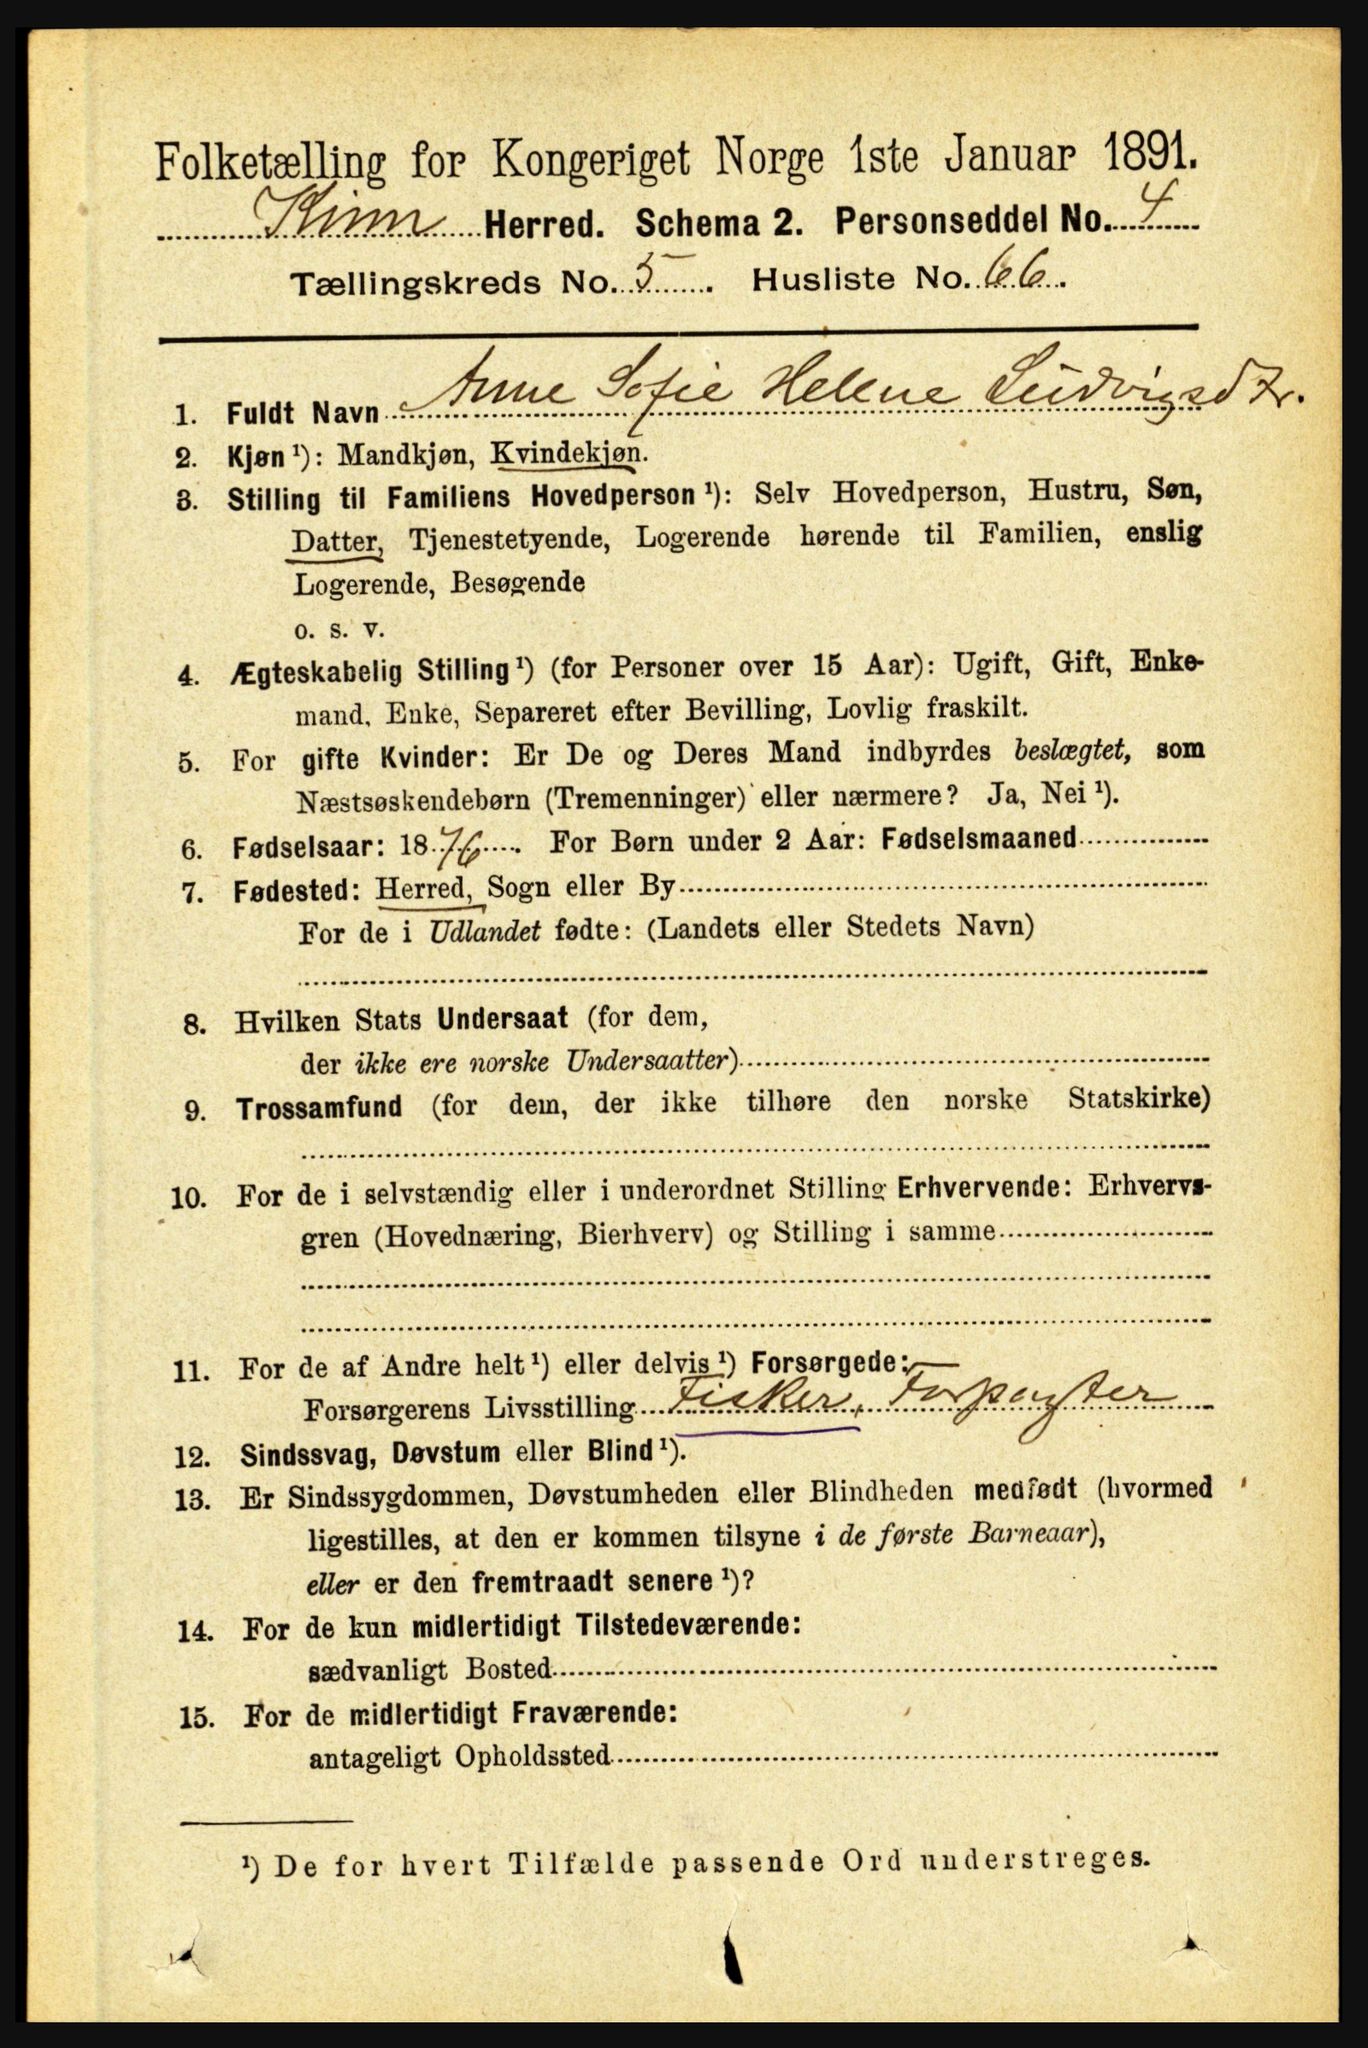 Folketælling for Kongeriget Norge 1ste Januar 1891.
Kinn Herred. Schema 2. Personseddel No. 4
Tællingskreds No. 5. Husliste No. 66.
1. Fuldt Navn Anne Sofie Helene Ludvigsdtr.
2. Kjøn ¹): Mandkjøn, Kvindekjøn.
3. Stilling til Familiens Hovedperson ¹): Selv Hovedperson, Hustru, Søn,
Datter, Tjenestetyende, Logerende hørende til Familien, enslig
Logerende, Besøgende
o. s. v.
4. Ægteskabelig Stilling ¹) (for Personer over 15 Aar): Ugift, Gift, Enke-
mand, Enke, Separeret efter Bevilling, Lovlig fraskilt.
5. For gifte Kvinder: Er De og Deres Mand indbyrdes beslægtet, som
Næstsøskendebørn (Tremenninger) eller nærmere? Ja, Nei ¹).
6. Fødselsaar: 1876. For Børn under 2 Aar: Fødselsmaaned
7. Fødested: Herred, Sogn eller By
For de i Udlandet fødte: (Landets eller Stedets Navn)
8. Hvilken Stats Undersaat (for dem,
der ikke ere norske Undersaatter)
9. Trossamfund (for dem, der ikke tilhøre den norske Statskirke)
10. For de i selvstændig eller i underordnet Stilling Erhvervende: Erhvervs-
gren (Hovednæring, Bierhverv) og Stilling i samme
11. For de af Andre helt ¹) eller delvis ¹) Forsørgede:
Forsørgerens Livsstilling Fisker, Forpagter
12. Sindssvag, Døvstum eller Blind ¹).
13. Er Sindssygdommen, Døvstumheden eller Blindheden medfødt (hvormed
ligestilles, at den er kommen tilsyne i de første Barneaar),
eller er den fremtraadt senere ¹)?
14. For de kun midlertidigt Tilstedeværende:
sædvanligt Bosted
15. For de midlertidigt Fraværende:
antageligt Opholdssted
¹) De for hvert Tilfælde passende Ord understreges.